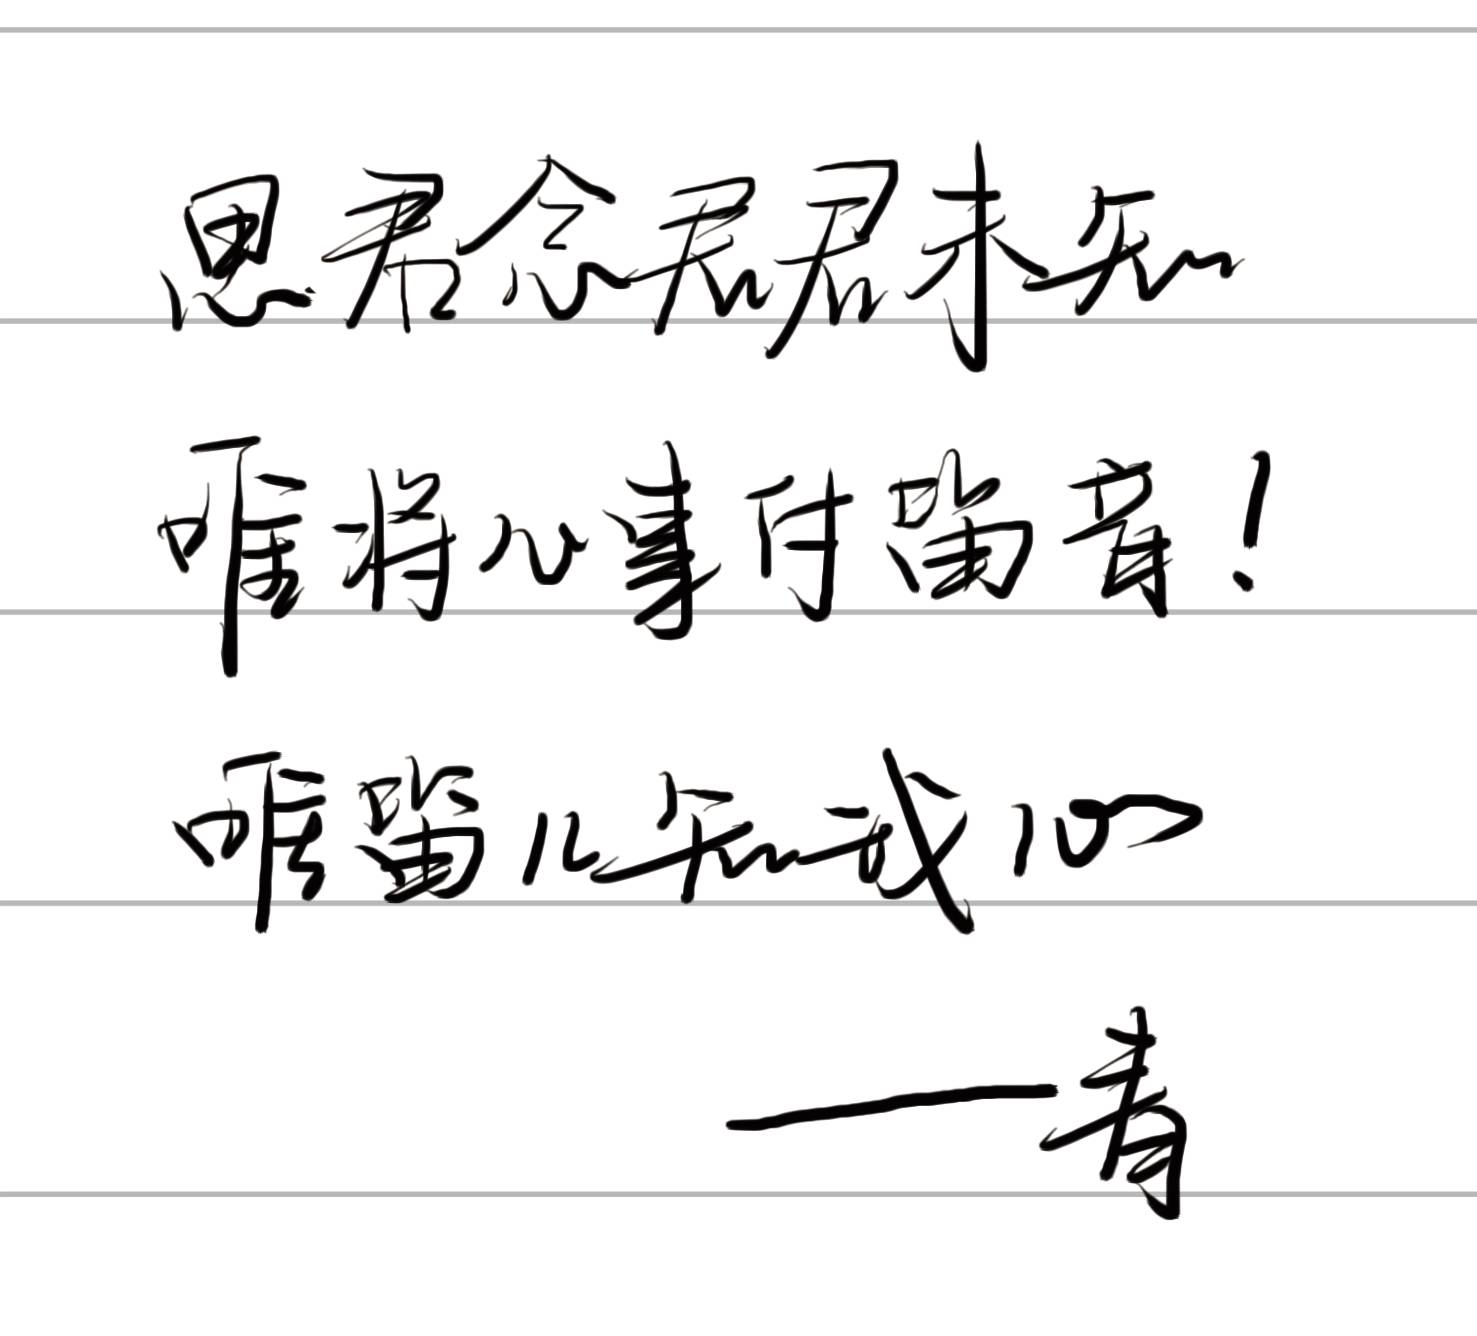 思君念君君未知
唯将心事付笛音!
唯笛儿知我心
——青